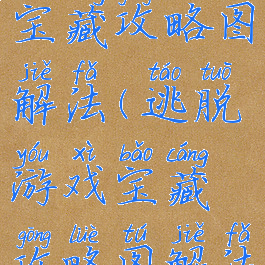 宝藏攻略图
jiě fǎ táo tuō
解法(逃脱
yóu xì bǎo cáng
游戏宝藏
gōng lüè tú jiě fǎ
攻略图解法